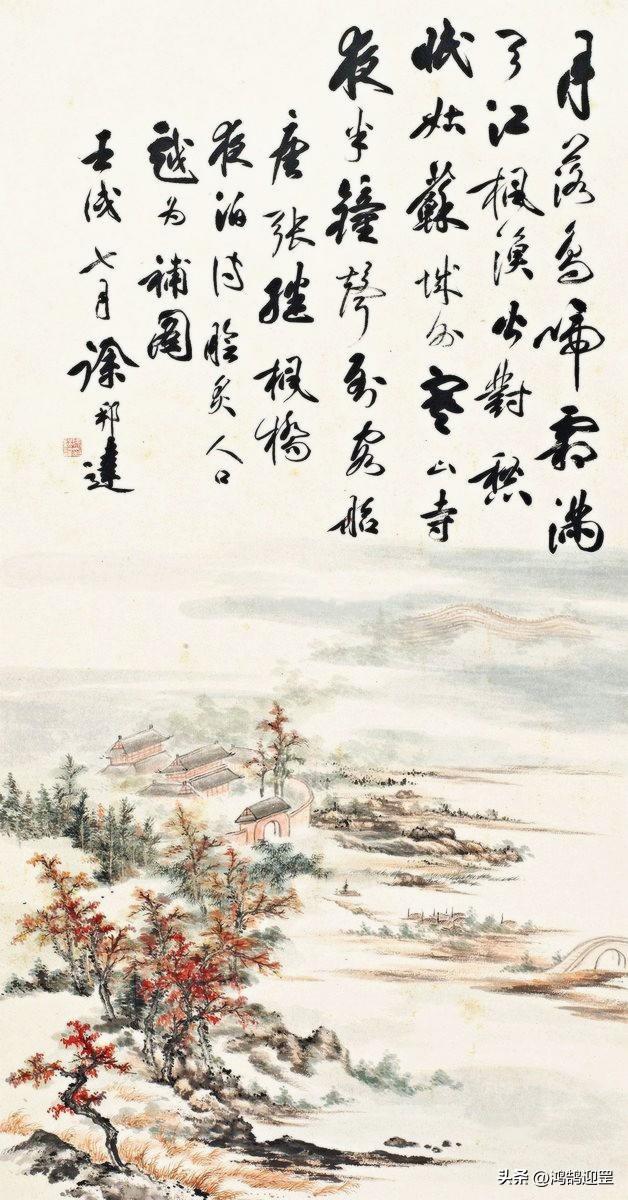 月落烏啼霜滿
天江楓漁火對愁
眠姑蘇城外寒山寺
夜半鐘聲到客船
唐張繼楓橋
夜泊诗膾炙人口
为補圖
壬戌七月徐邦達
头条 @鸿鹄迎罡